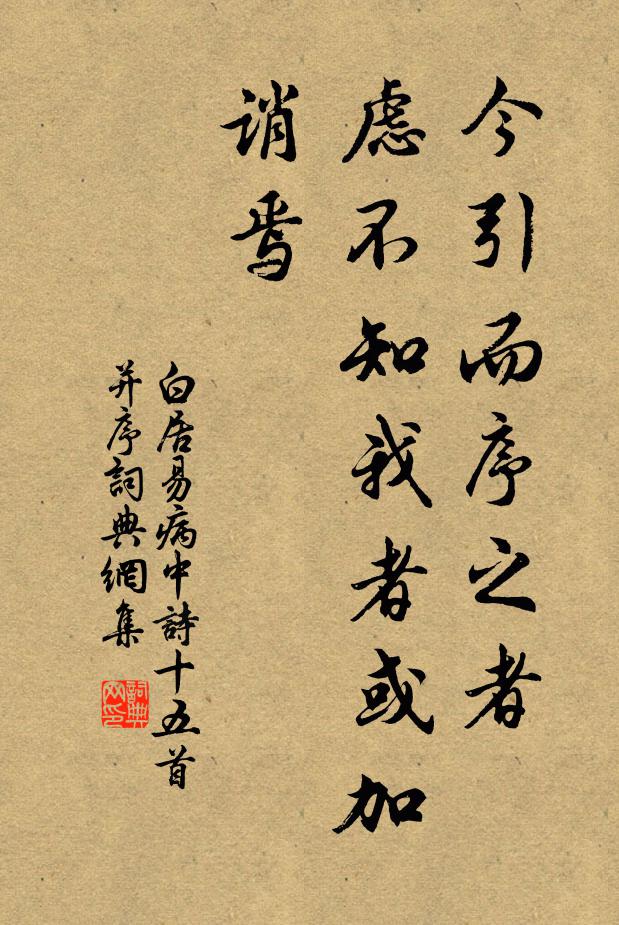 今引而序之者
慮不知我者或加
誚焉
白居易病中詩十五首
并序詞典網集
詞典
网印